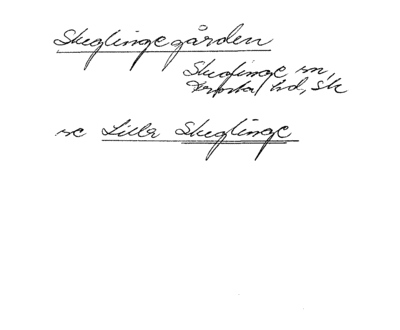 Skeglingegården
Skeglinge sn,
hd, Sk
se Lilla Skeglinge